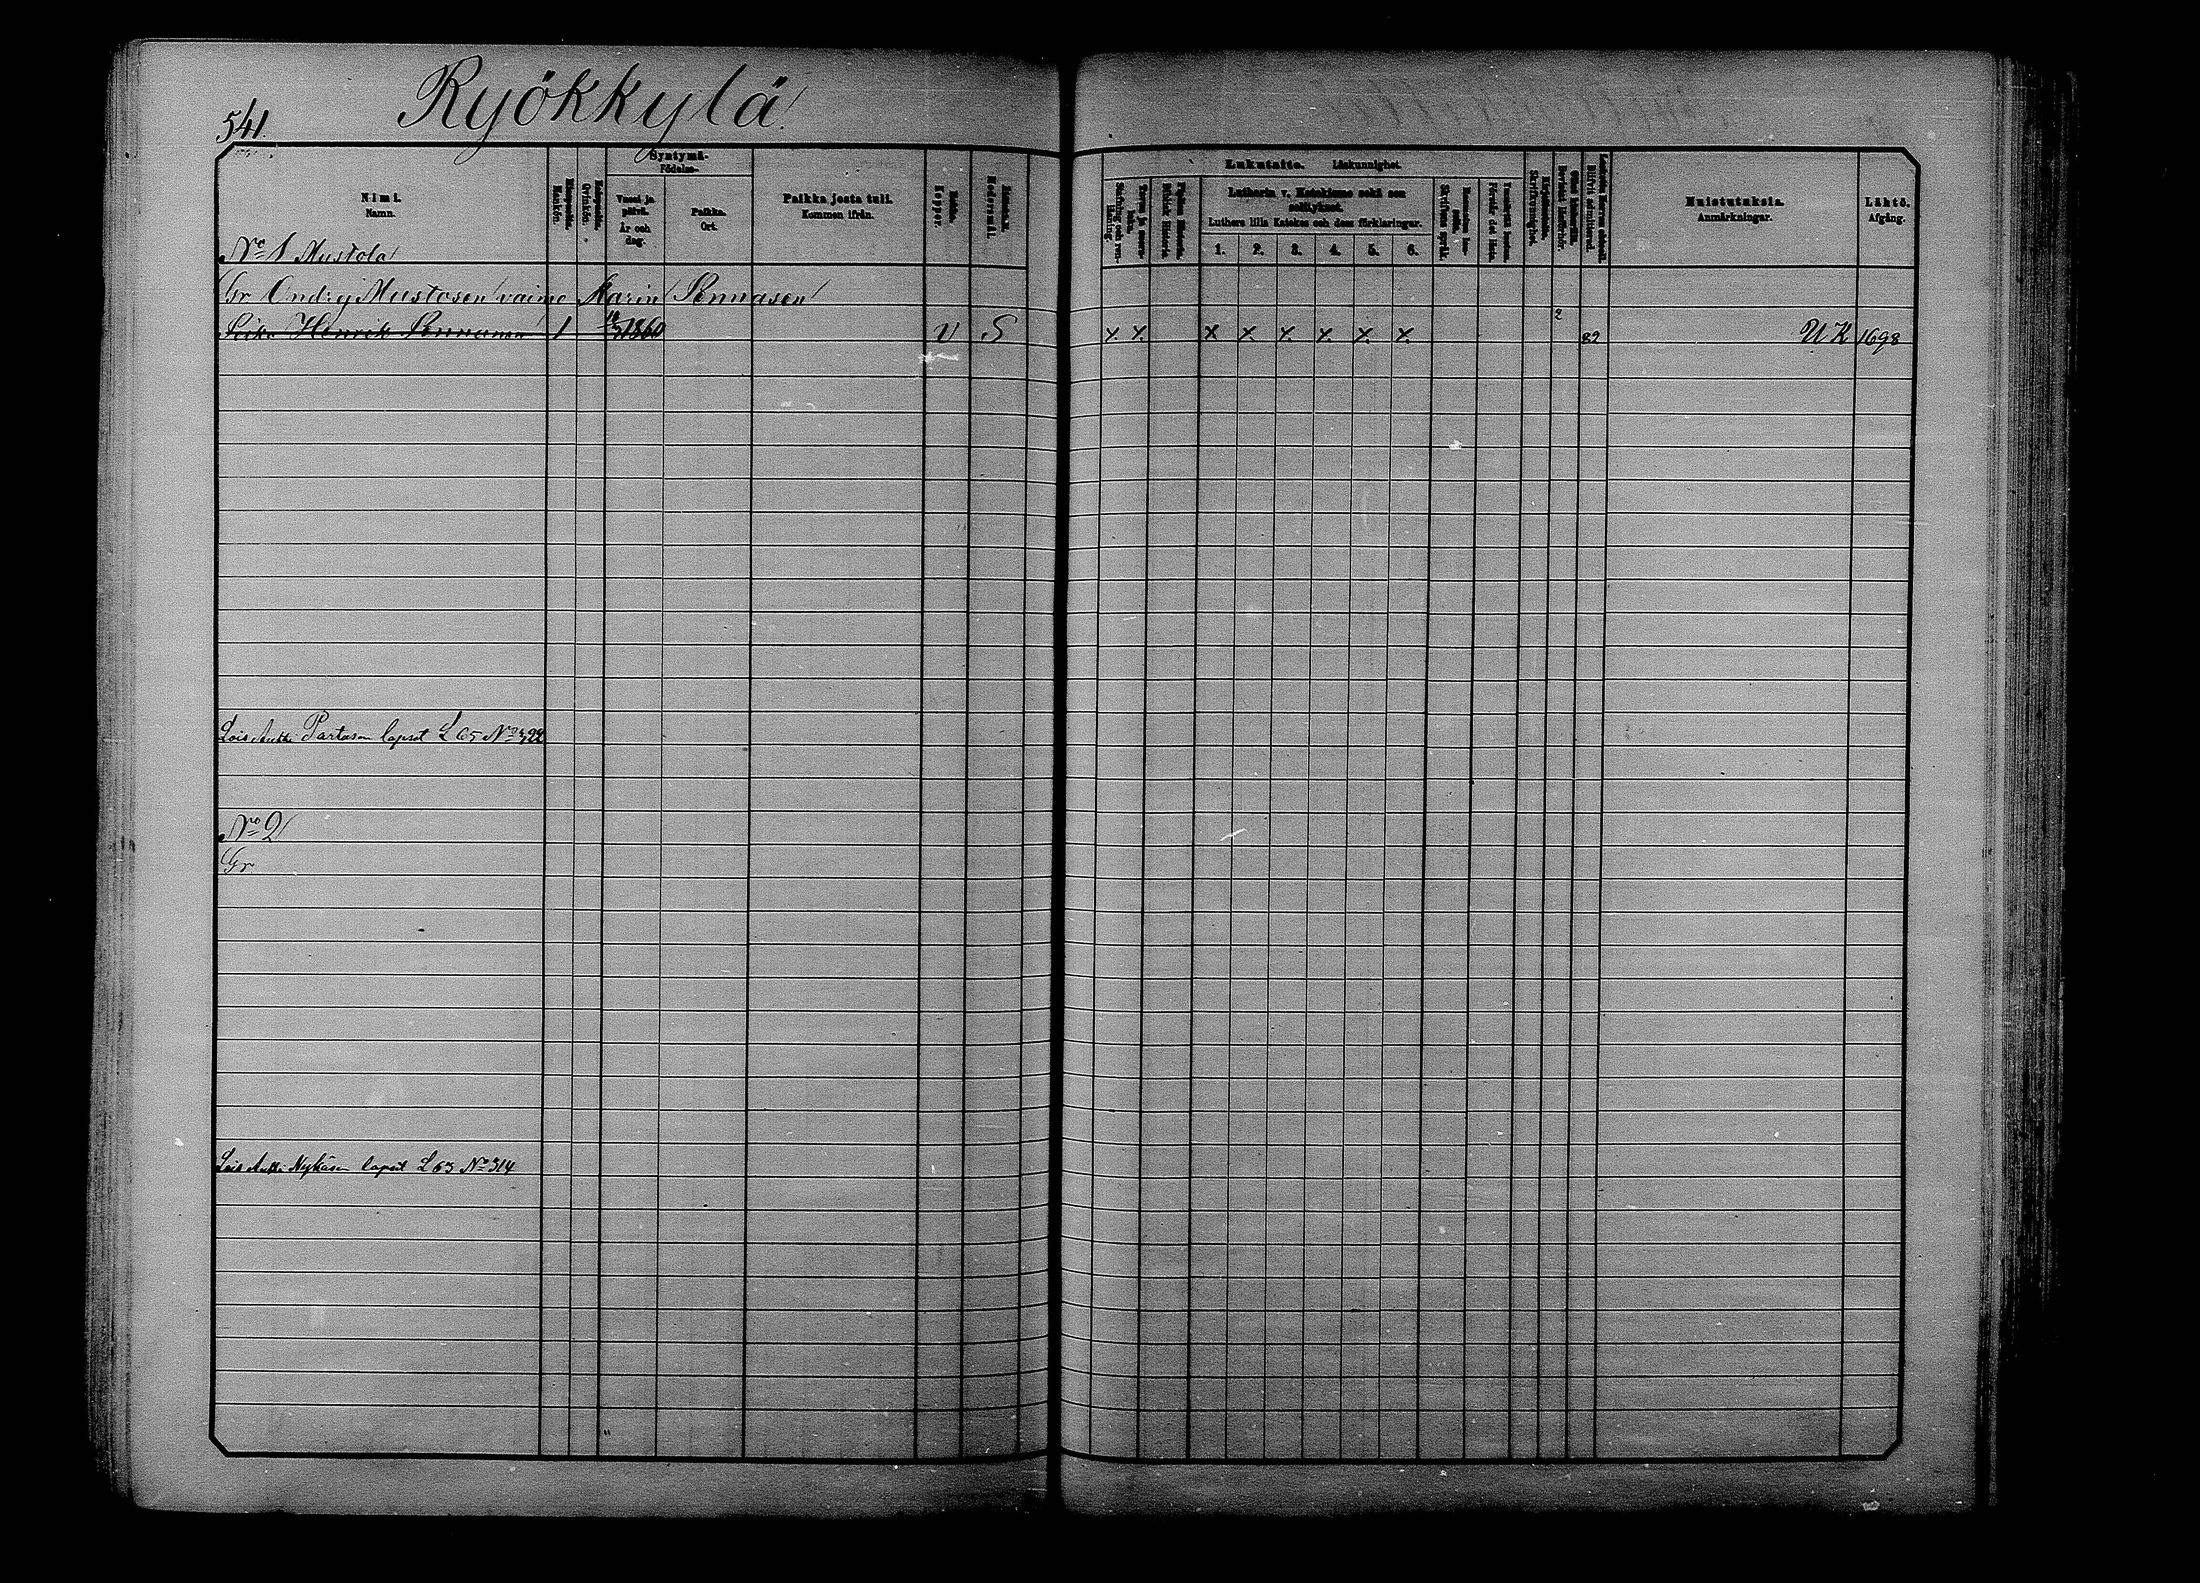 541.
Ryökkylä
Nimi. Namn.
Miespuolia. Mankön.
Vaimopuolia. Qvinkön.
Syntymä- Födelse-
Vuosi ja päivä. År och dag.
Paikka. Ort.
Paikka josta tuli. Kommen ifrån.
Rokko. Koppor.
Modersmål.
Lukutaito. Läskunnighet.
Lutherin v. Katekismo sekä sen selitykset.
Luthers lilla Katekes och dess förklaringar.
1. 2. 3. 4. 5. 6.
Muistutuksia. Anmärkningar.
Lähtö. Afgång.
No 1 Mustola
Gr Ondrej Mustosen vaimo Karin Sonnasen
Henrik 1 1860 V S x. x. x x. x. x. x. x. 2 82 UK 1698
Lois Antti Partasen lapset L 65 No 322
No 2
Gr
Lois Antti Nykäsen lapset L 63 No 314